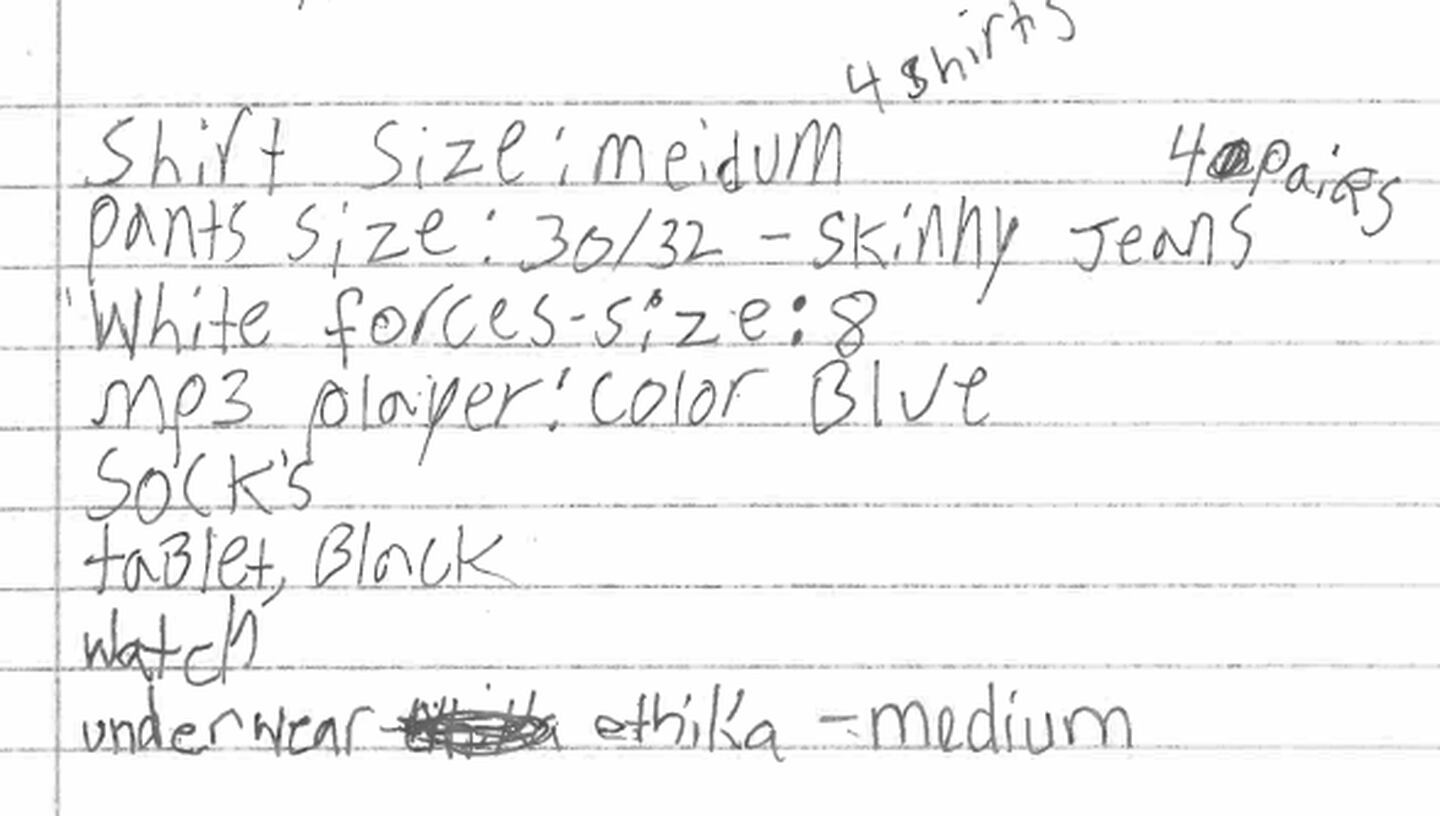 4 shirts
Shirt size: meidum
4 paires
pants size: 30/32 - skinny Jeans
White forces-size: 8
mp3 player: Color Blue
Sock's
taBlet, Black
watch
underwear ethika - medium